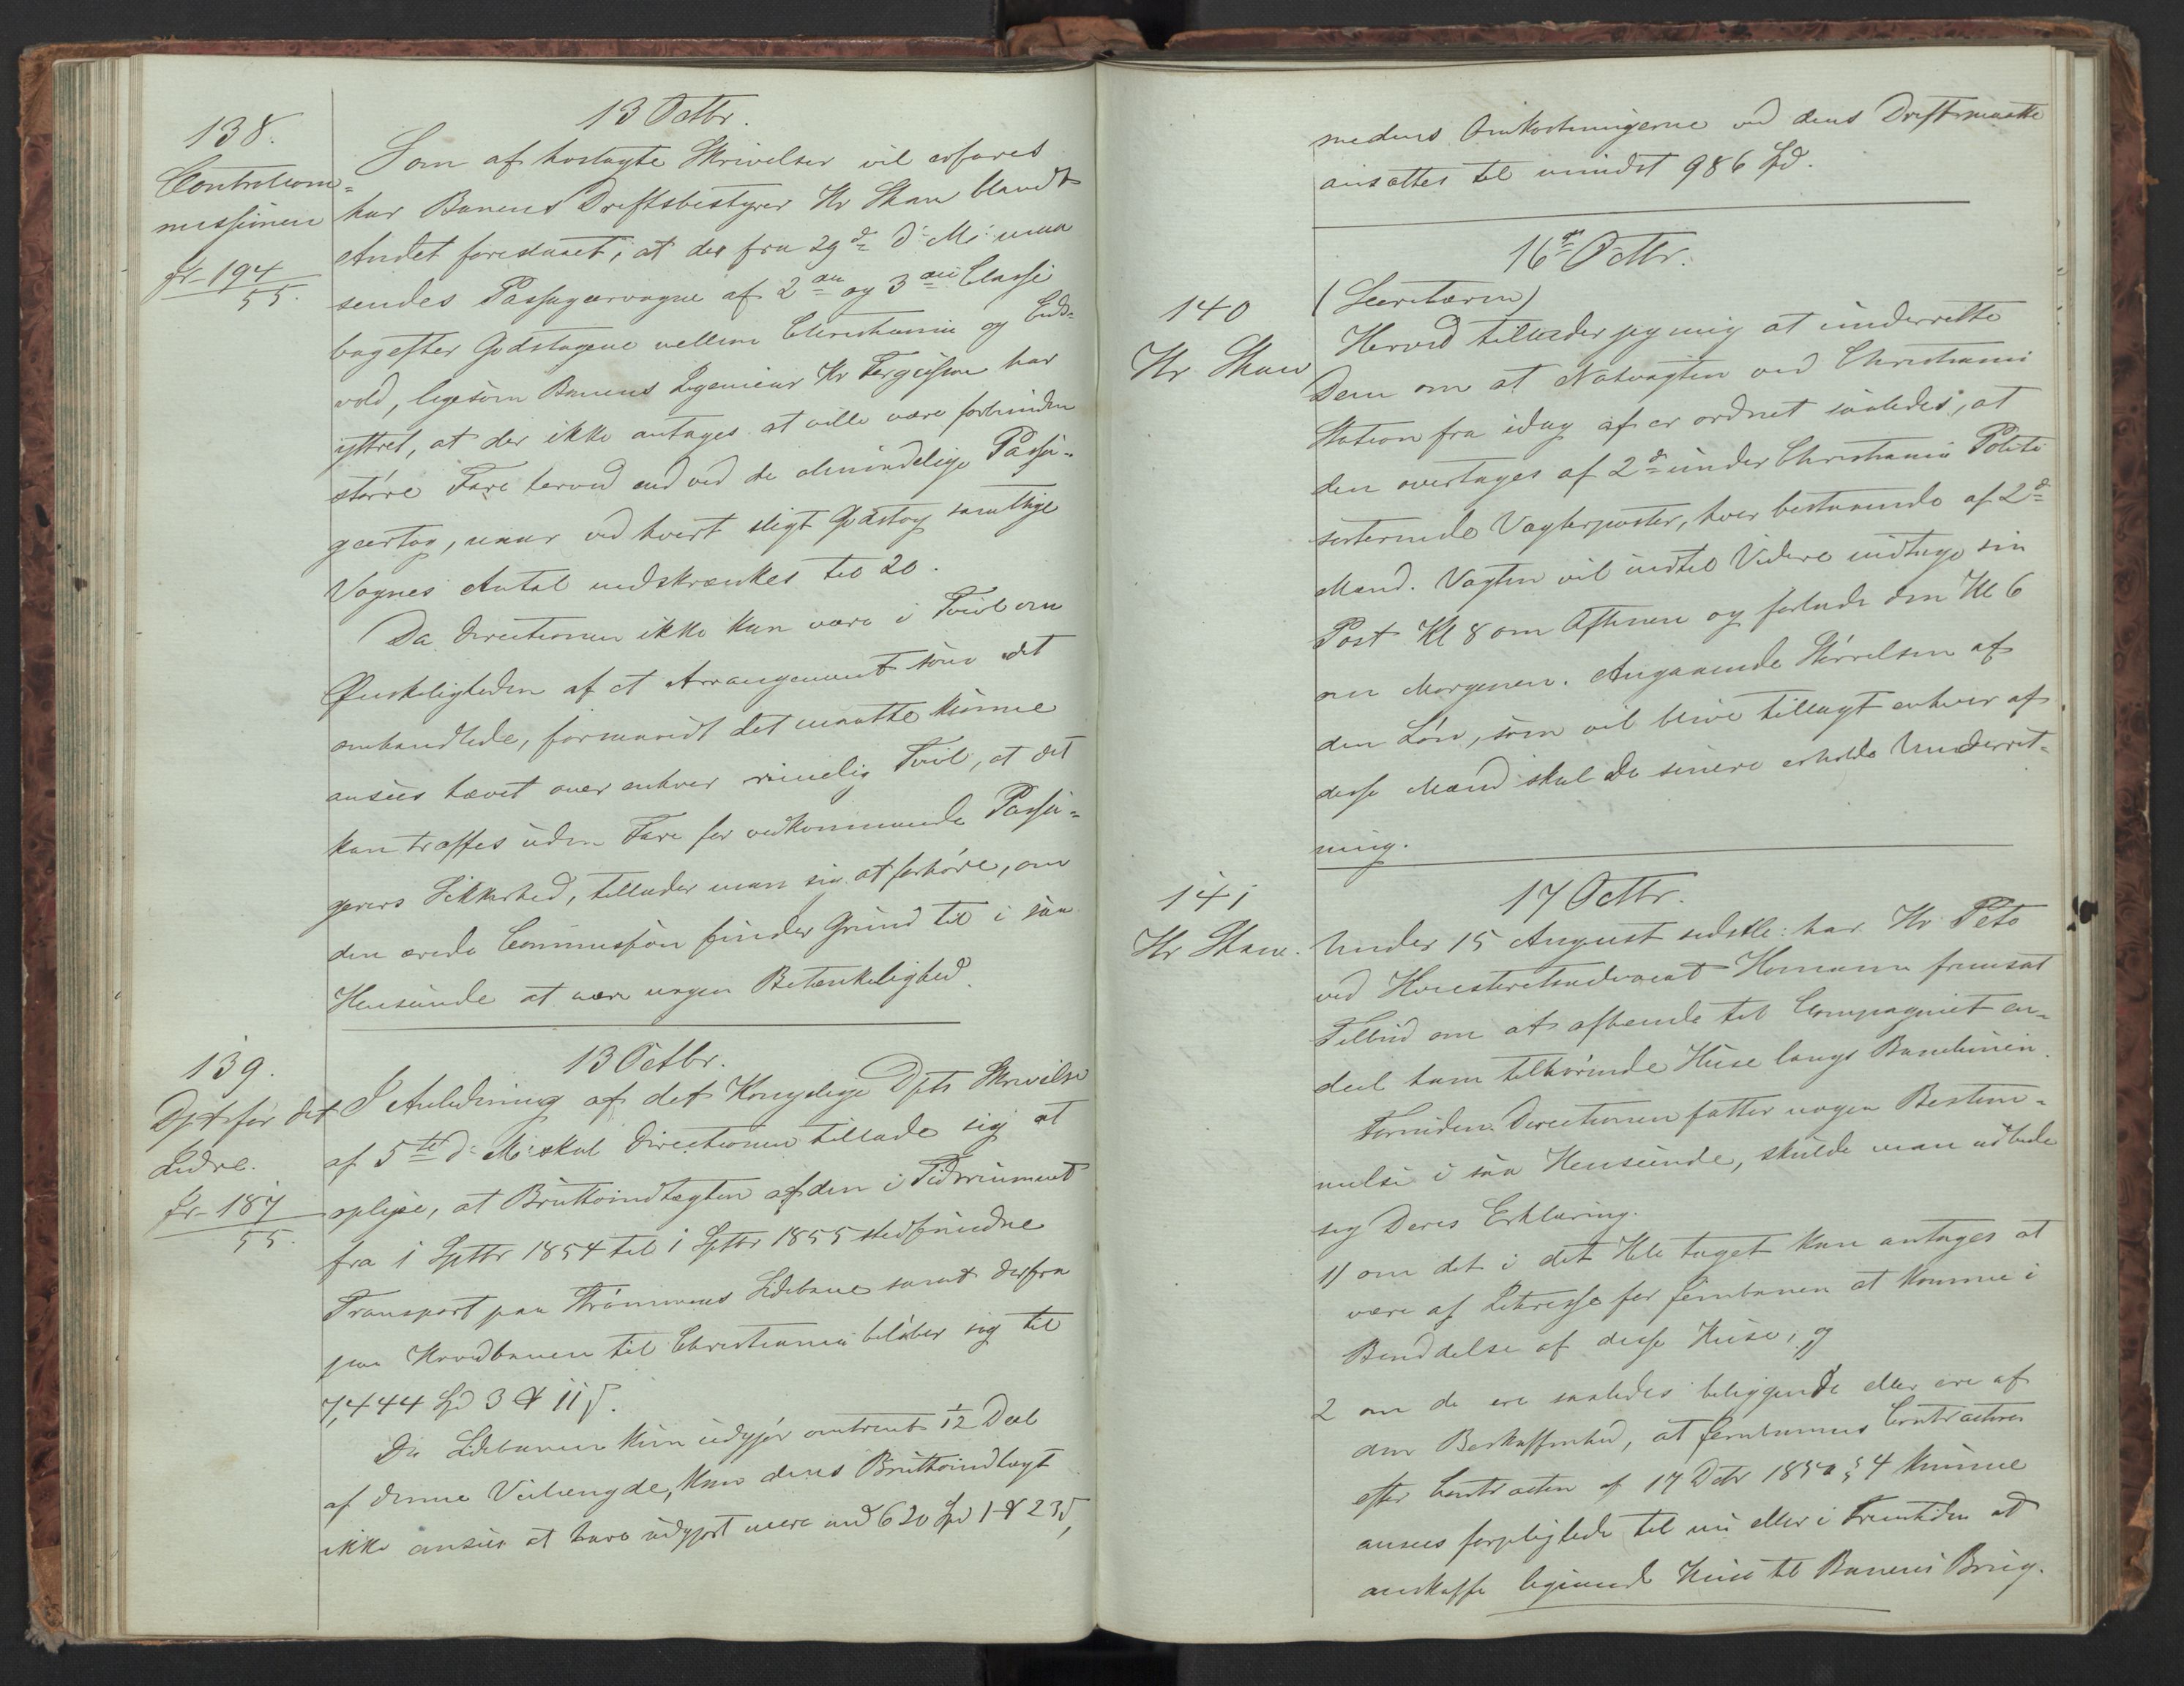 138.
Controlcom-
missionen
Jr 194
55.
13 Octbr.
Som af hoslagte Skrivelser vil erfares
har Banens Driftsbestyrer Hr Shaw blandt
Andet foreslaaet, at der fra 29de d: M: maa
sendes Passagervogne af 2den og 3die Classe
bagefter Godstogene mellem Christiania og Eids-
vold, ligesom Banens Ingenieur Hr Ferguson har
yttret, at der ikke antages at ville være forbunden
større Fare herved end ved de almindelige Passa-
geertog, naar ved hvert sligt Godstog samtlige
Vognes Antal indskrænkes til 20.
Da Directionen ikke kan være i Tvivl om
Ønskeligheden af et Arrangement som det
omhandlede, forsaavidt det maatte kunne
ansees hævet over enhver rimelig Tvivl, at det
kan træffes uden Fare for vedkommende Passa-
gerers Sikkerhed, tillader man sig at forhøre, om
den ærede Commission finder Grund til i saa
Henseende at nære nogen Betænkelighed.
139.
Dpt for det
Indre.
Jr 187
55.
13 Octbr.
I Anledning af det Kongelige Dpts Skrivelse
af 5te d: M: skal Directionen tillade sig at
oplyse, at Bruttoindtægten af den i Tidsrummet
fra 1 Septbr 1854 til 1 Septbr 1855 stedfundne
Transport paa Strømmens Sidebane samt derfra
paa Hovedbanen til Christiania beløber sig til
7,444 Spd 3 # 11 s.
Da Sidebanen kun udgjør omtrent 1/12 Deel
af denne Veilængde, kan dens Bruttoindtægt
ikke ansees at have udgjort mere end 620 Spd 1 # 23 s,
medens Omkostningerne ved dens Driftsmaatte
ansættes til mindst 986 Spd.
16de Octbr.
140
Hr. Shaw
(Secretæren)
Herved tillader jeg mig at underrette
Dem om at Natvagten ved Christiania
Station fra idag af er ordnet saaledes, at
den overtages af 2de under Christiania Politi
sorterende Vægterposter, hver bestaaende af 2de
Mand. Vagten vil indtil Videre indtage sin
Post Kl 8 om Aftenen og forlade den Kl 6
om Morgenen. Angaaende Størrelsen af
den Løn, som vil blive tillagt enhver af
disse Mænd skal De senere erholde Underret-
ning.
141
Hr Shaw.
17 Octbr.
Under 15 August sidstl: har Hr Peto
ved Høiesteretsadvocat Homann fremsat
Tilbud om at afhænde til Compagniet en-
deel ham tilhørende Huse langs Banelinien.
Forinden Directionen fatter nogen Bestem-
melse i saa Henseende, skulde man udbede
sig Deres Erklæring.
1) om det i det Hele taget kan antages at
være af Interesse for Jernbanen at komme i
Besiddelse af disse Huse, og
2 om de ere saaledes beliggende eller ere af
den Beskaffenhed, at Jernbanens Contractører
efter Contracten af 17 Dcbr 1850 § 4 kunne
ansees forpligtede til nu eller i Fremtiden at
anskaffe lignende Huse til Banens Brug.